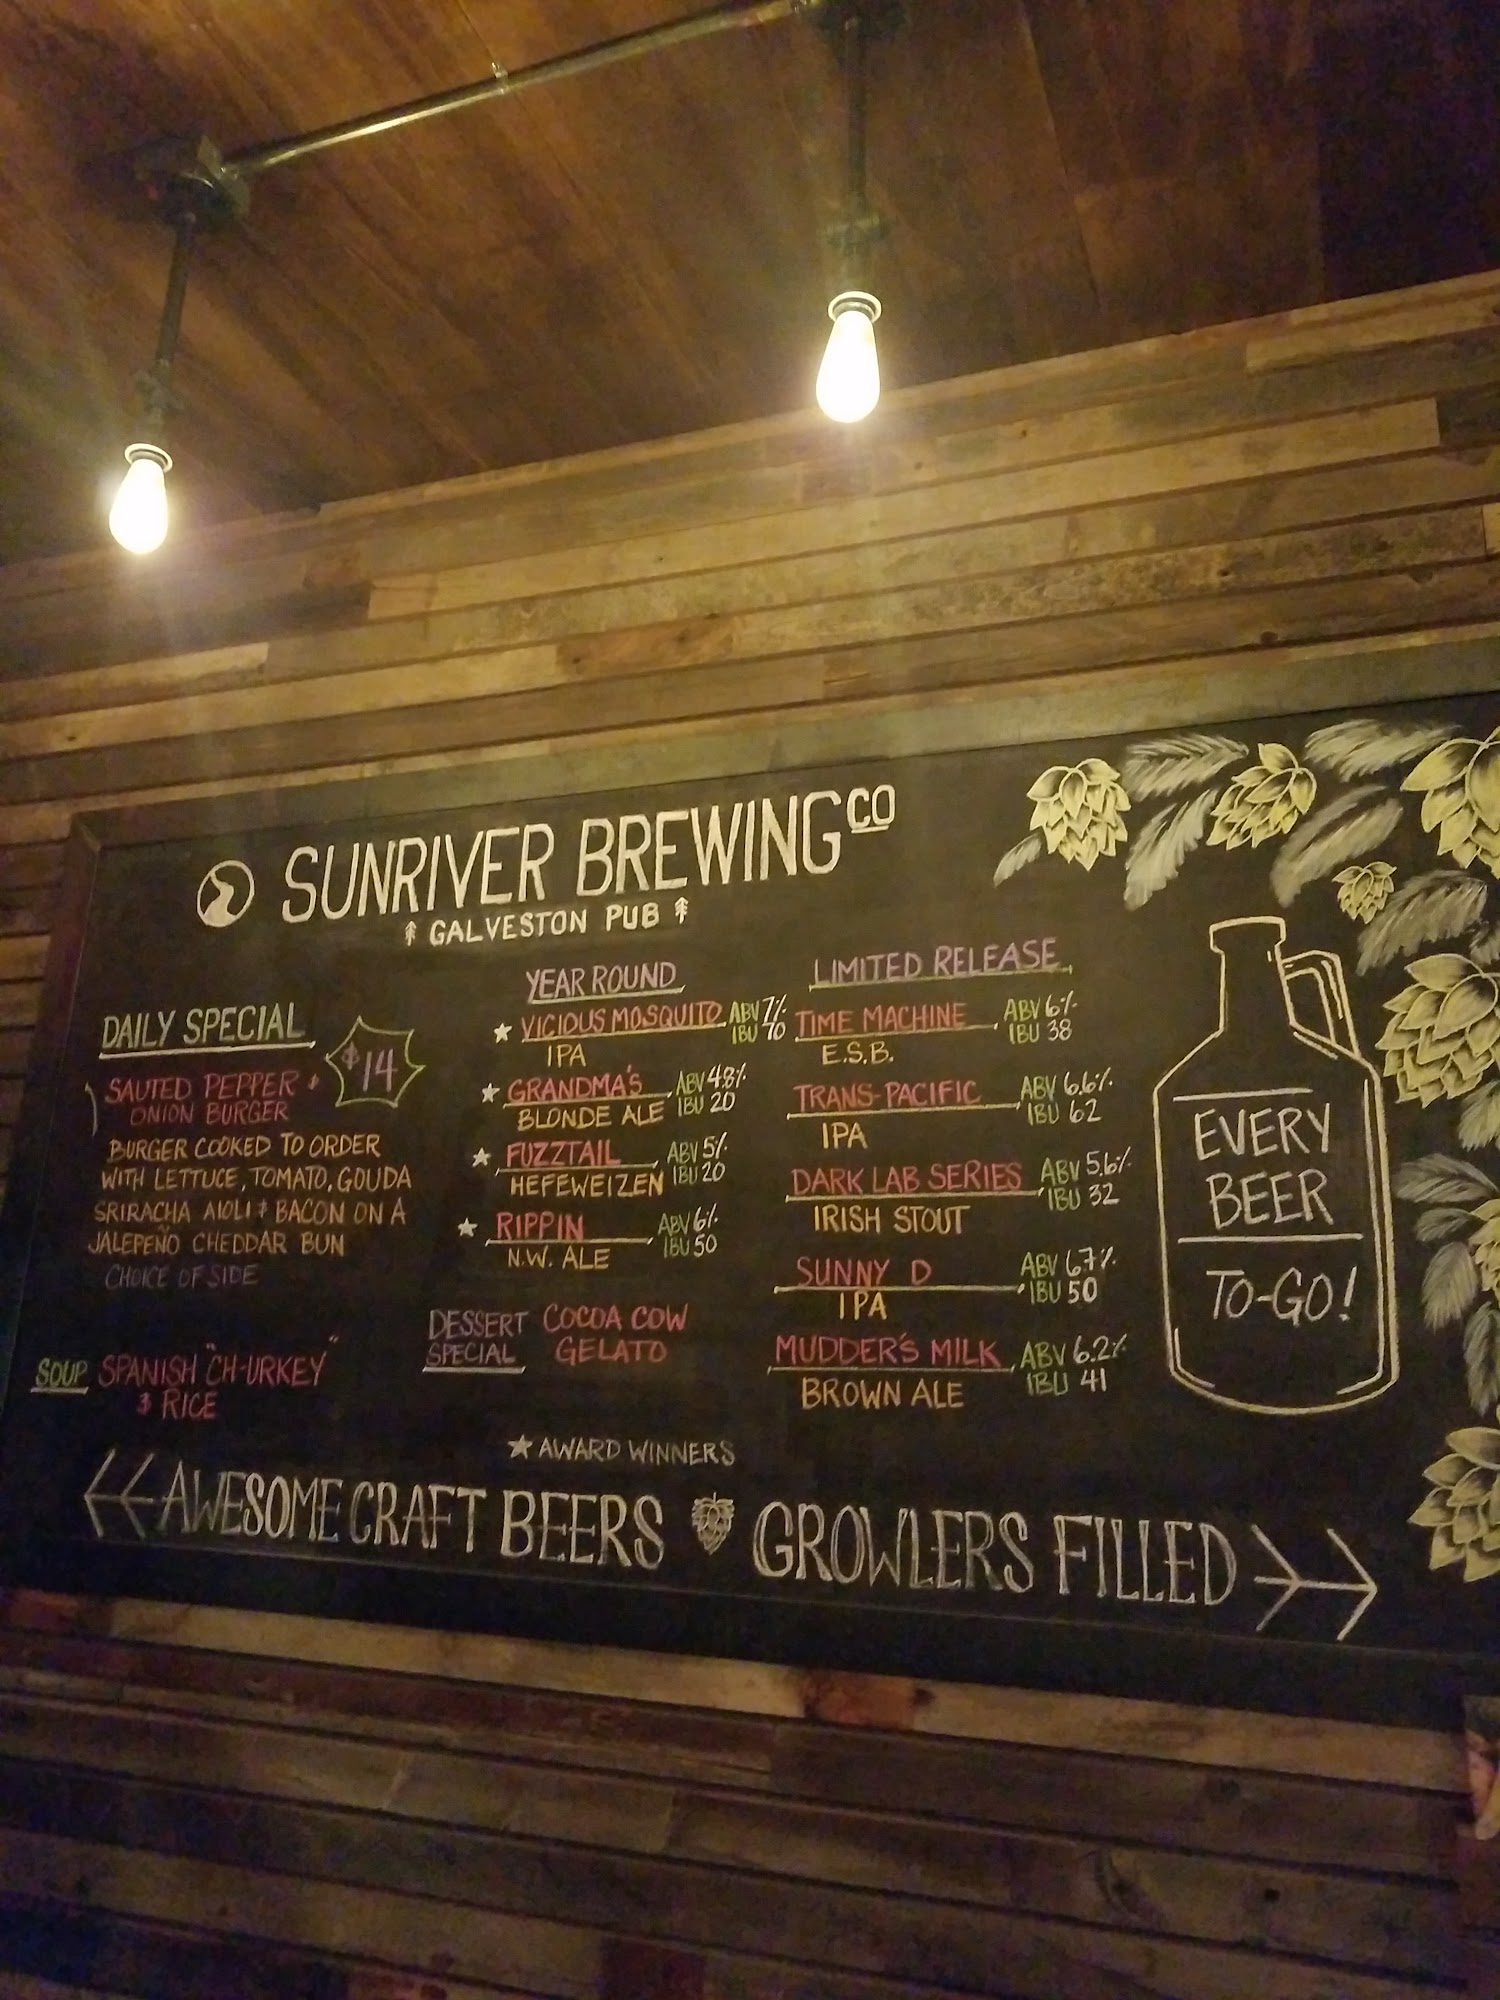 SUNRIVER BREWING CO
GALVESTON PUB
DAILY SPECIAL
$14
SAUTED PEPPER &
ONION BURGER
BURGER COOKED TO ORDER
WITH LETTUCE, TOMATO, GOUDA
SRIRACHA AIOLI & BACON ON A
JALEPEÑO CHEDDAR BUN
CHOICE OF SIDE
SOUP SPANISH "CH-URKEY"
& RICE
YEAR ROUND
★ VICIOUS MOSQUITO ABV 7%
IPA IBU 70
★ GRANDMA'S ABV 4.8%
BLONDE ALE IBU 20
★ FUZZTAIL ABV 5%
HEFEWEIZEN IBU 20
★ RIPPIN ABV 6%
N.W. ALE IBU 50
DESSERT COCOA COW
SPECIAL GELATO
LIMITED RELEASE
TIME MACHINE ABV 6%
E.S.B. IBU 38
TRANS-PACIFIC ABV 6.6%
IPA IBU 62
DARK LAB SERIES ABV 5.6%
IRISH STOUT IBU 32
SUNNY D ABV 6.7%
IPA IBU 50
MUDDER'S MILK ABV 6.2%
BROWN ALE IBU 41
EVERY
BEER
TO-GO!
★ AWARD WINNERS
AWESOME CRAFT BEERS GROWLERS FILLED